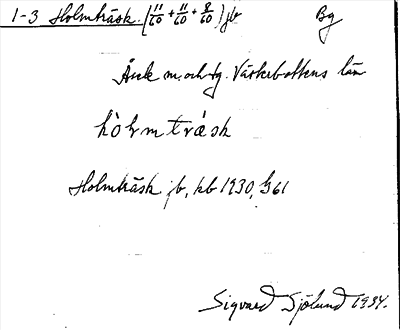 1-3 Holmträsk. (11/60 + 11/60 + 8/60) jb Bg
m. och tg. Västerbottens län
hòlmtrǻsk
Holmträsk jb, kb 1930, G61
Sigvard Sjölund 1934.